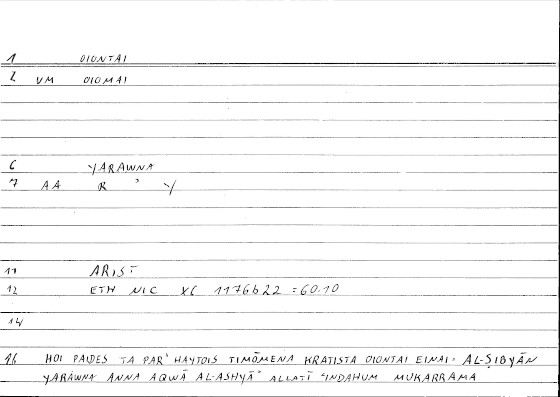 1 OIONTAI
2 VM OIOMAI
6 YARAWNA
7 AA R ʾ Y
11 ARIST
12 ETH NIC XC 1176b22 = 60.10
14
16 HOI PAIDES TA PAR' HAYTOIS TIMŌMENA KRATISTA OIONTAI EINAI: AL-ṢIBYĀN
YARAWNA ANNA AQWĀ AL-ASHYĀʾ ALLATĪ ʿINDAHUM MUKARRAMA